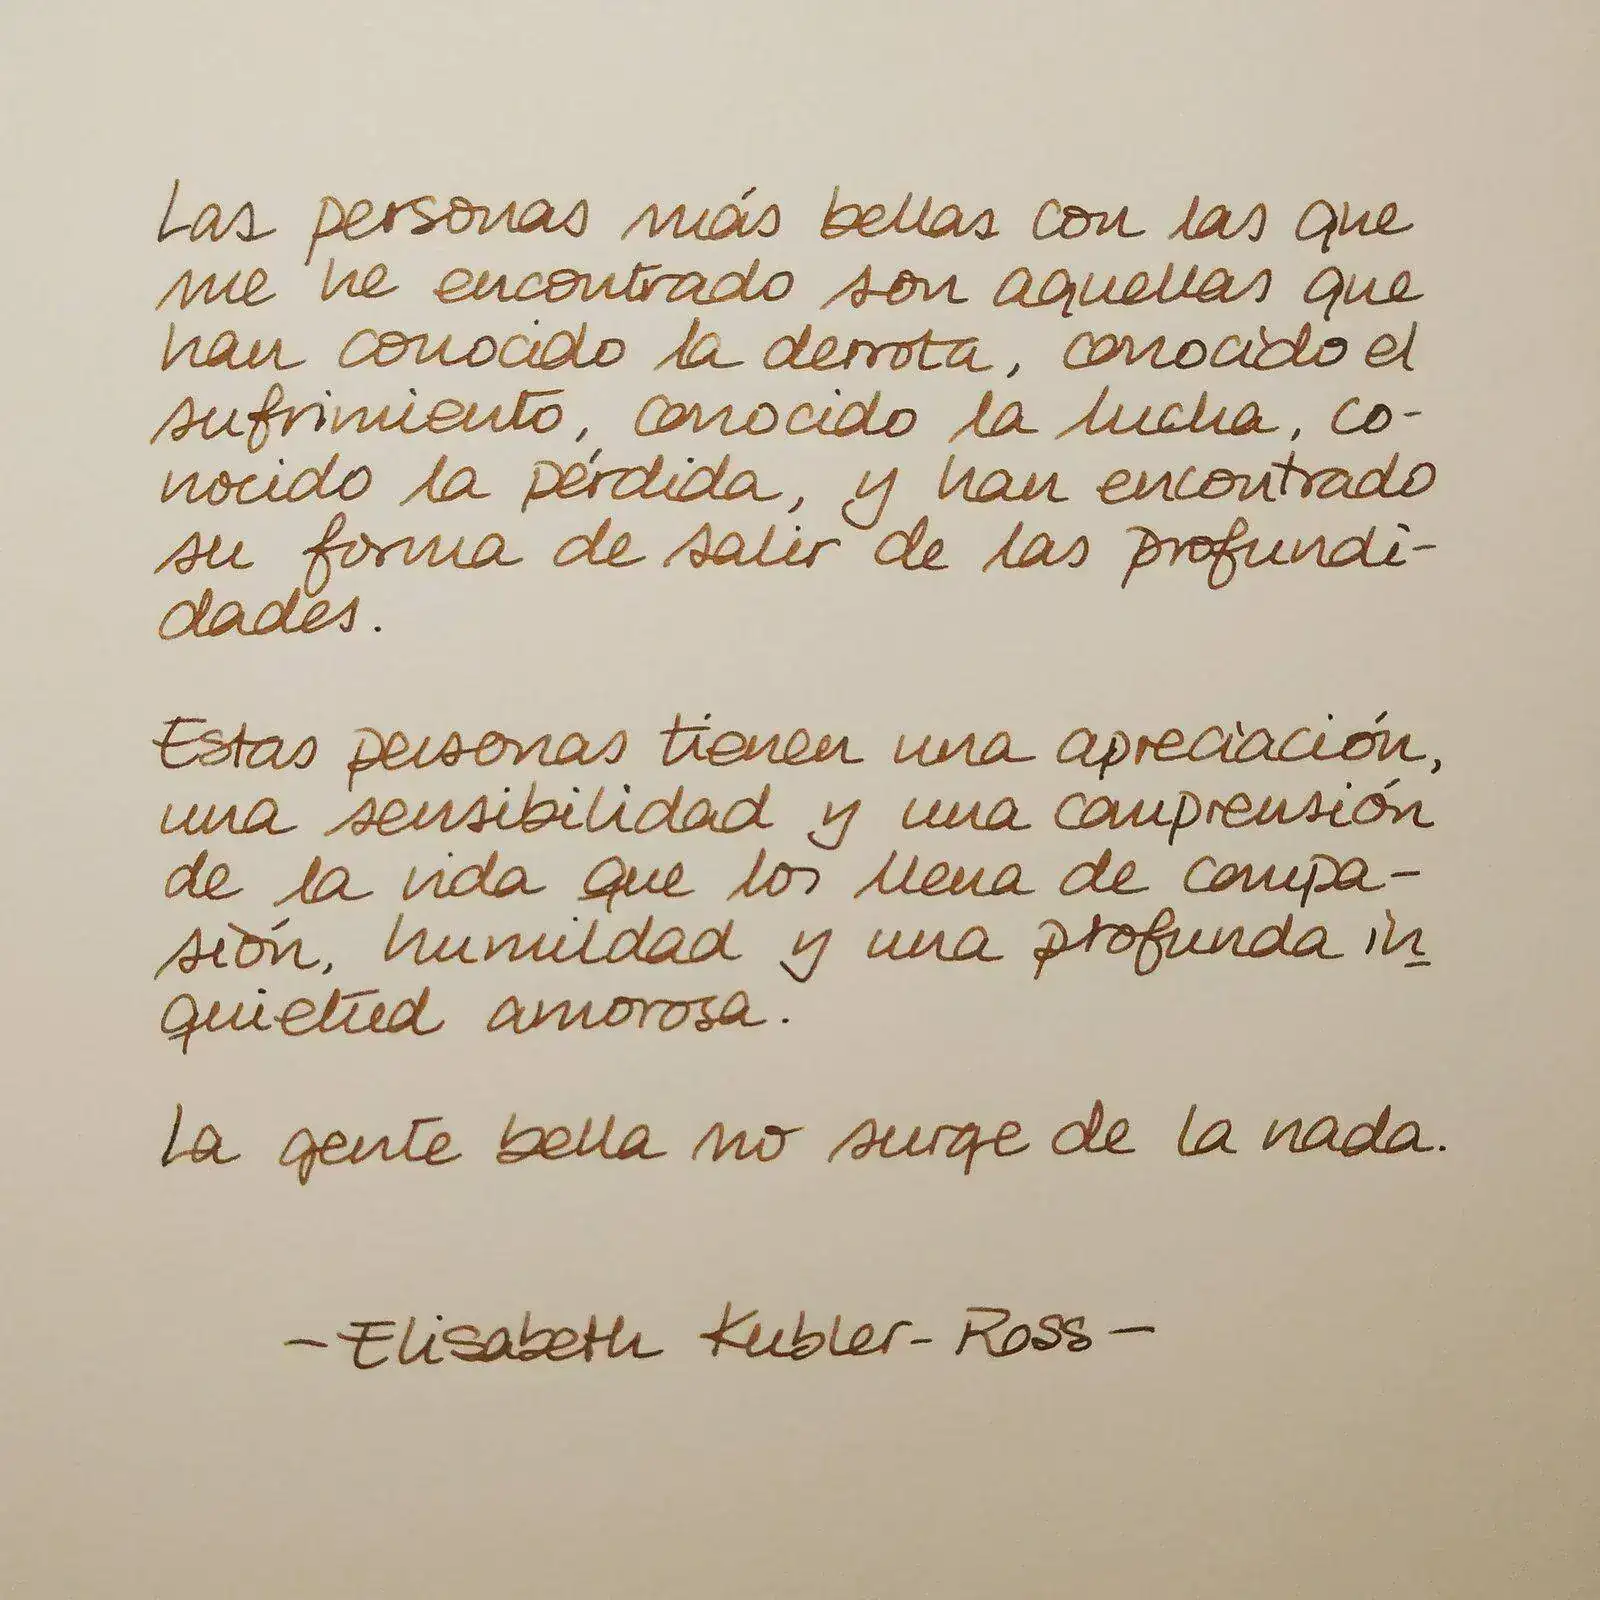 Las personas más bellas con las que
me he encontrado son aquellas que
han conocido la derrota, conocido el
sufrimiento, conocido la lucha, co-
nocido la pérdida, y han encontrado
su forma de salir de las profundi-
dades.
Estas personas tienen una apreciación,
una sensibilidad y una comprensión
de la vida que los llena de compa-
sión, humildad y una profunda in-
quietud amorosa.
La gente bella no surge de la nada.
- Elisabeth Kubler-Ross -